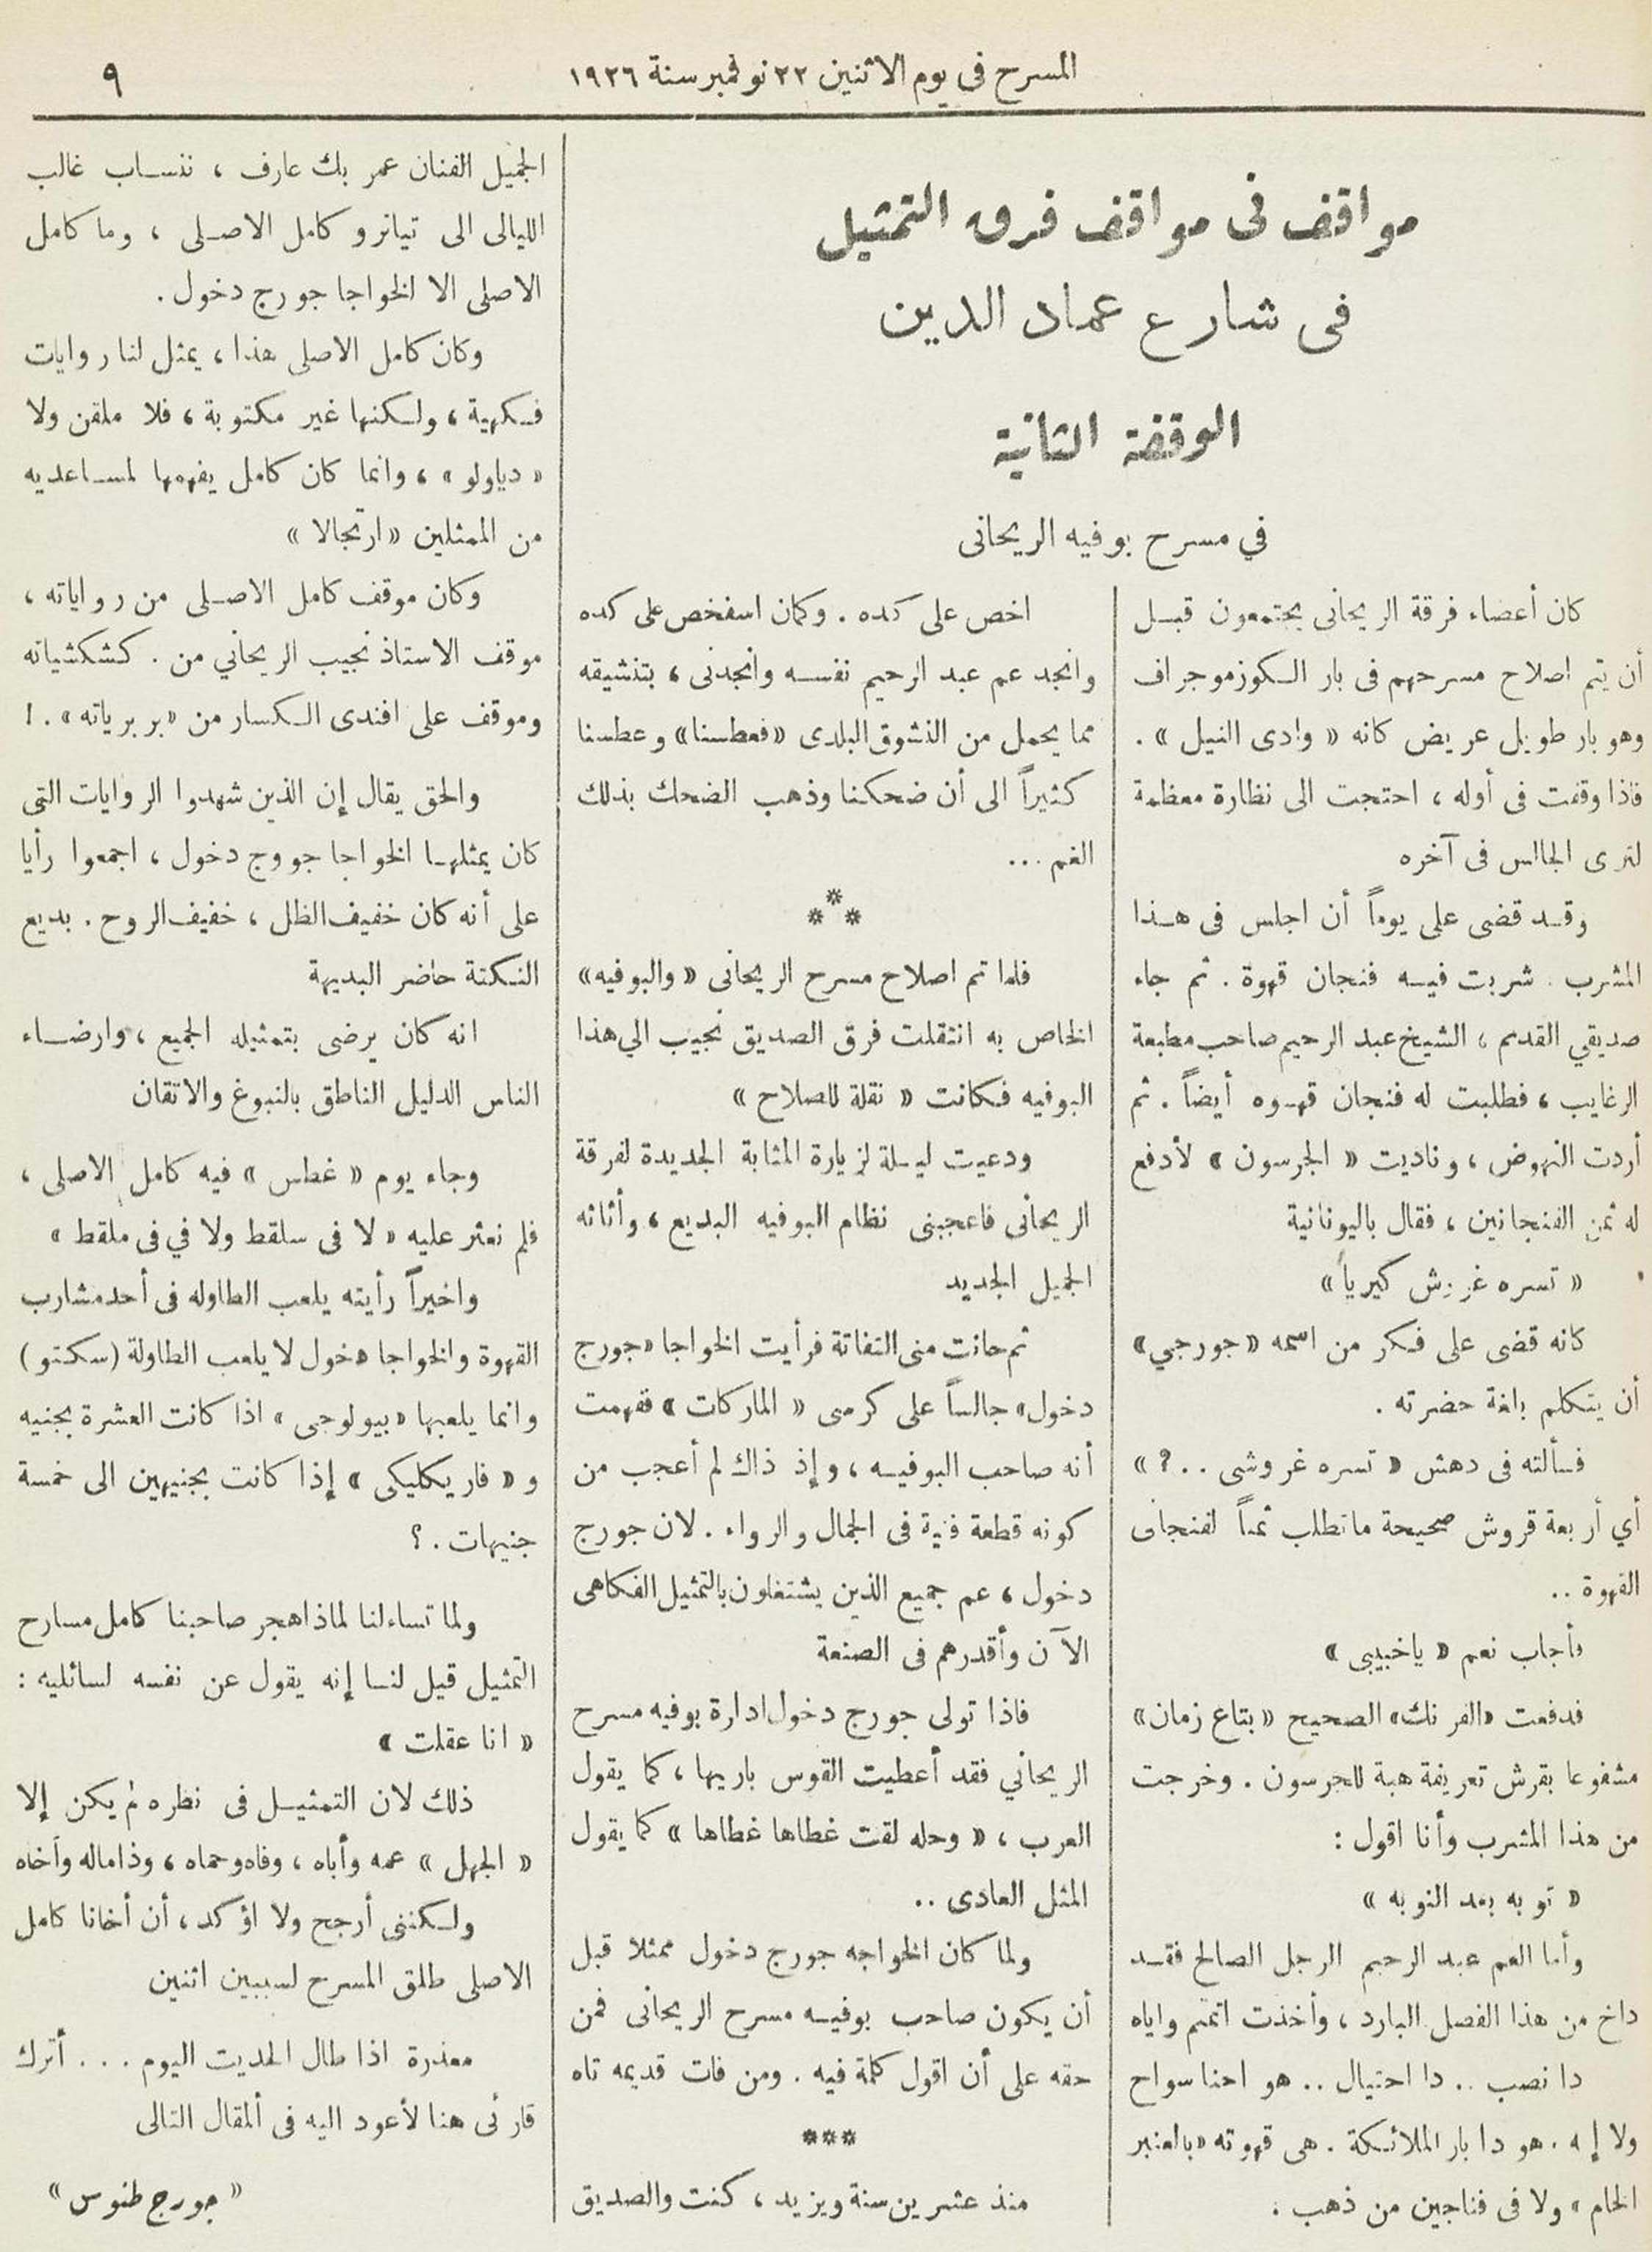 المسرح فى يوم الاثنين ٢٢ نوفمبر سنة ١٩٢٦
٩
مواقف فى مواقف فرق التمثيل
فى شارع عماد الدين
الوقفة الثانية
في مسرح بوفيه الريحانى
كان أعضاء فرقة الريحانى يجتمعون قبل
أن يتم اصلاح مسرحهم فى بار الكوزموجراف
وهو بار طويل عريض كانه « وادى النيل » .
فاذا وقفت فى أوله ، احتجت الى نظارة معظمة
لترى الجالس فى آخره
وقد قضى على يوماً أن اجلس فى هذا
المشرب . شربت فيه فنجان قهوة . ثم جاء
صديقي القديم ، الشيخ عبد الرحيم صاحب مطبعة
الرغايب ، فطلبت له فنجان قهوه أيضاً . ثم
أردت النهوض ، وناديت « الجرسون » لأدفع
له ثمن الفنجانين ، فقال باليونانية
« تسره غرزش كيرياً »
كانه قضى على فكر من اسمه « جورجي »
أن يتكلم بلغة حضرته .
فسألته فى دهش « تسره غروشى . . ? »
أي أربعة قروش صحيحة ماتطلب ثمناً لفنجانى
القهوة . .
فأجاب نعم « ياخبيبى »
فدفعت «الفرنك» الصحيح « بتاع زمان»
مشفوعا بقرش تعريفة هبة للجرسون . وخرجت
من هذا المشرب وأنا اقول :
« توبه بعد النوبه »
وأما العم عبد الرحيم الرجل الصالح فقد
داخ من هذا الفصل البارد ، وأخذت اتمتم واياه
دا نصب . . دا احتيال . . هو احنا سواح
ولا إيه . هو دا بار الملائكة . هى قهوته «بالعنبر
الخام » ولا فى فناجين من ذهب .
اخص على كده . وكمان اسفخص على كده
وانجد عم عبد الرحيم نفسه وانجدنى ، بتنشيقه
مما يحمل من النشوق البلدى «فعطسنا» وعطسنا
كثيراً الى أن ضحكنا وذهب الضحك بذلك
الغم ...
* * *
فلما تم اصلاح مسرح الريحانى « والبوفيه»
الخاص به انتقلت فرق الصديق نجيب الي هذا
البوفيه فكانت « نقلة للصلاح »
ودعيت ليلة لزيارة المثابة الجديدة لفرقة
الريحانى فاعجبنى نظام البوفيه البديع ، وأثاثه
الجميل الجديد
ثم حانت منى التفاتة فرأيت الخواجا «جورج
دخول» جالساً على كرسى « الماركات » ففهمت
أنه صاحب البوفيه ، وإذ ذاك لم أعجب من
كونه قطعة فنية فى الجمال والرواء . لان جورج
دخول ، عم جميع الذين يشتغلون بالتمثيل الفكاهى
الآن وأقدرهم فى الصنعة
فاذا تولى جورج دخول ادارة بوفيه مسرح
الريحاني فقد أعطيت القوس باريها ، كما يقول
العرب ، « وحله لقت غطاها غطاها » كما يقول
المثل العادى . .
ولما كان الخواجه جورج دخول ممثلا قبل
أن يكون صاحب بوفيه مسرح الريحانى فمن
حقه على أن اقول كلمة فيه . ومن فات قديمه تاه
***
منذ عشرين سنة ويزيد ، كنت والصديق
الجميل الفنان عمر بك عارف ، ننساب غالب
الليالى الى تياترو كامل الاصلى ، وما كامل
الاصلى الا الخواجا جورج دخول .
وكان كامل الاصلى هذا ، يمثل لنا روايات
فكهية ، ولكنها غير مكتوبة ، فلا ملقن ولا
« دياولو » ، وانما كان كامل يفهمها لمساعديه
من الممثلين « ارتجالا »
وكان موقف كامل الاصلى من رواياته ،
موقف الاستاذ نجيب الريحاني من . كشكشياته
وموقف على افندى الكسار من «بربرياته» . !
والحق يقال إن الذين شهدوا الروايات التى
كان يمثلها الخواجا جووج دخول ، اجمعوا رأيا
على أنه كان خفيف الظل ، خفيف الروح . بديع
النكتة حاضر البديهة
انه كان يرضى بتمثيله الجميع ، وارضاء
الناس الدليل الناطق بالنبوغ والاتقان
وجاء يوم « غطس » فيه كامل الاصلى ،
فلم نعثر عليه « لا فى سلقط ولا في فى ملقط »
واخيراً رأيته يلعب الطاوله فى أحد مشارب
القهوة والخواجا دخول لا يلعب الطاولة (سكتو)
وانما يلعبها «بيولوجى» اذا كانت العشرة بجنيه
و « فاريكليكى » إذا كانت بجنيهين الى خمسة
جنيهات . ؟
ولما تساءلنا لماذا هجر صاحبنا كامل مسارح
التمثيل قيل لنا إنه يقول عن نفسه لسائليه :
« انا عقلت »
ذلك لان التمثيل فى نظره لم يكن إلا
« الجهل » عمه وأباه ، وفاه وحماه ، وذاماله وأخاه
ولكننى أرجح ولا اؤكد ، أن أخانا كامل
الاصلى طلق المسرح لسببين اثنين
معذرة اذا طال الحديت اليوم . . . أترك
قارئى هنا لأعود اليه فى المقال التالى
« جورج طنوس »